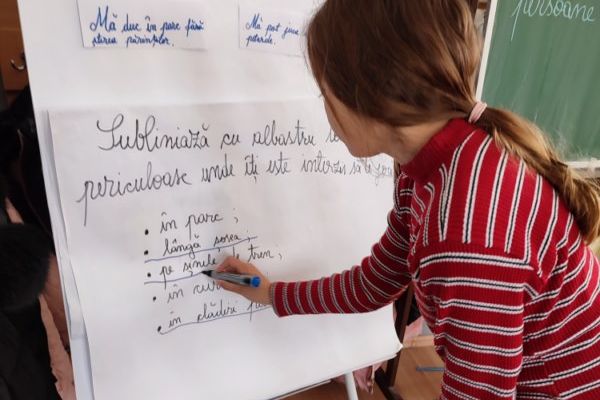 Mă duc în parc fără
știrea părinților.
Mă pot juca
persoane
Subliniază cu albastru
periculoase unde îți este interzis să
• în parc ;
• lângă șosea ;
• pe șinele de tren ;
• în
• în clădiri